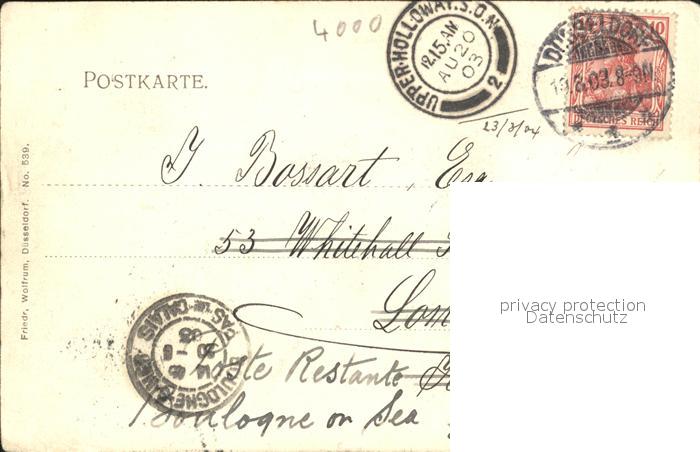 4000
UPPER-HOLLOWAY.S.O.N
12.15.AM
AU 20
03
2
DÜSSELDORF
19.8.03.8-9N
10
DEUTSCHES REICH
POSTKARTE.
23/8/04
J. Bossart, Esq
53 Whitehall
Lon
BOULOGNE
PAS DE CALAIS
Poste Restante
Boulogne on Sea
Friedr. Wolfrum, Düsseldorf. No. 539.
privacy protection
Datenschutz